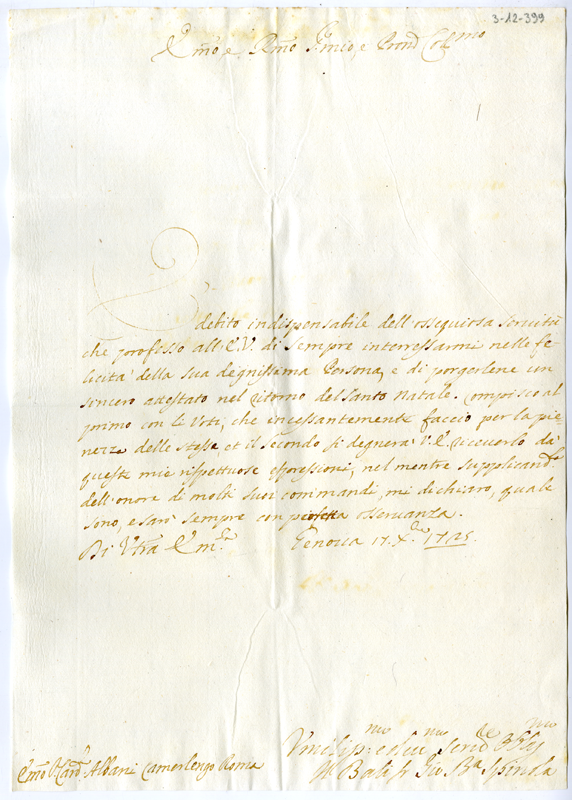 3-12-399
Emõ e Rmõ Sigrio, e Prond Colmo
È debito indispensabile dell'ossequiosa servitù
che professo all'E.V. di sempre interressarmi nelle fe-
licità della sua degnissima Persona, e di porgerlene un
sincero attestato nel ritorno del Santo Natale. Compisco al
primo con li Voti, che incessantemente faccio per la pie-
nezza delle stesse, et il secondo si degnerà V.E. riceverlo da
queste mie rispettose espressioni, nel mentre supplicand.
dell'onore di molti suoi commandi, mi dichiaro, quale
sono, e sarò sempre con perfetta osservanza.
Di Vtra Em.ᵃ Genova 17. X.bre 1725
Vmilis.mo e deu.mo Serd.e
Gio Ba Spinola
Emo Sr Card.l Albani Camerlengo Roma